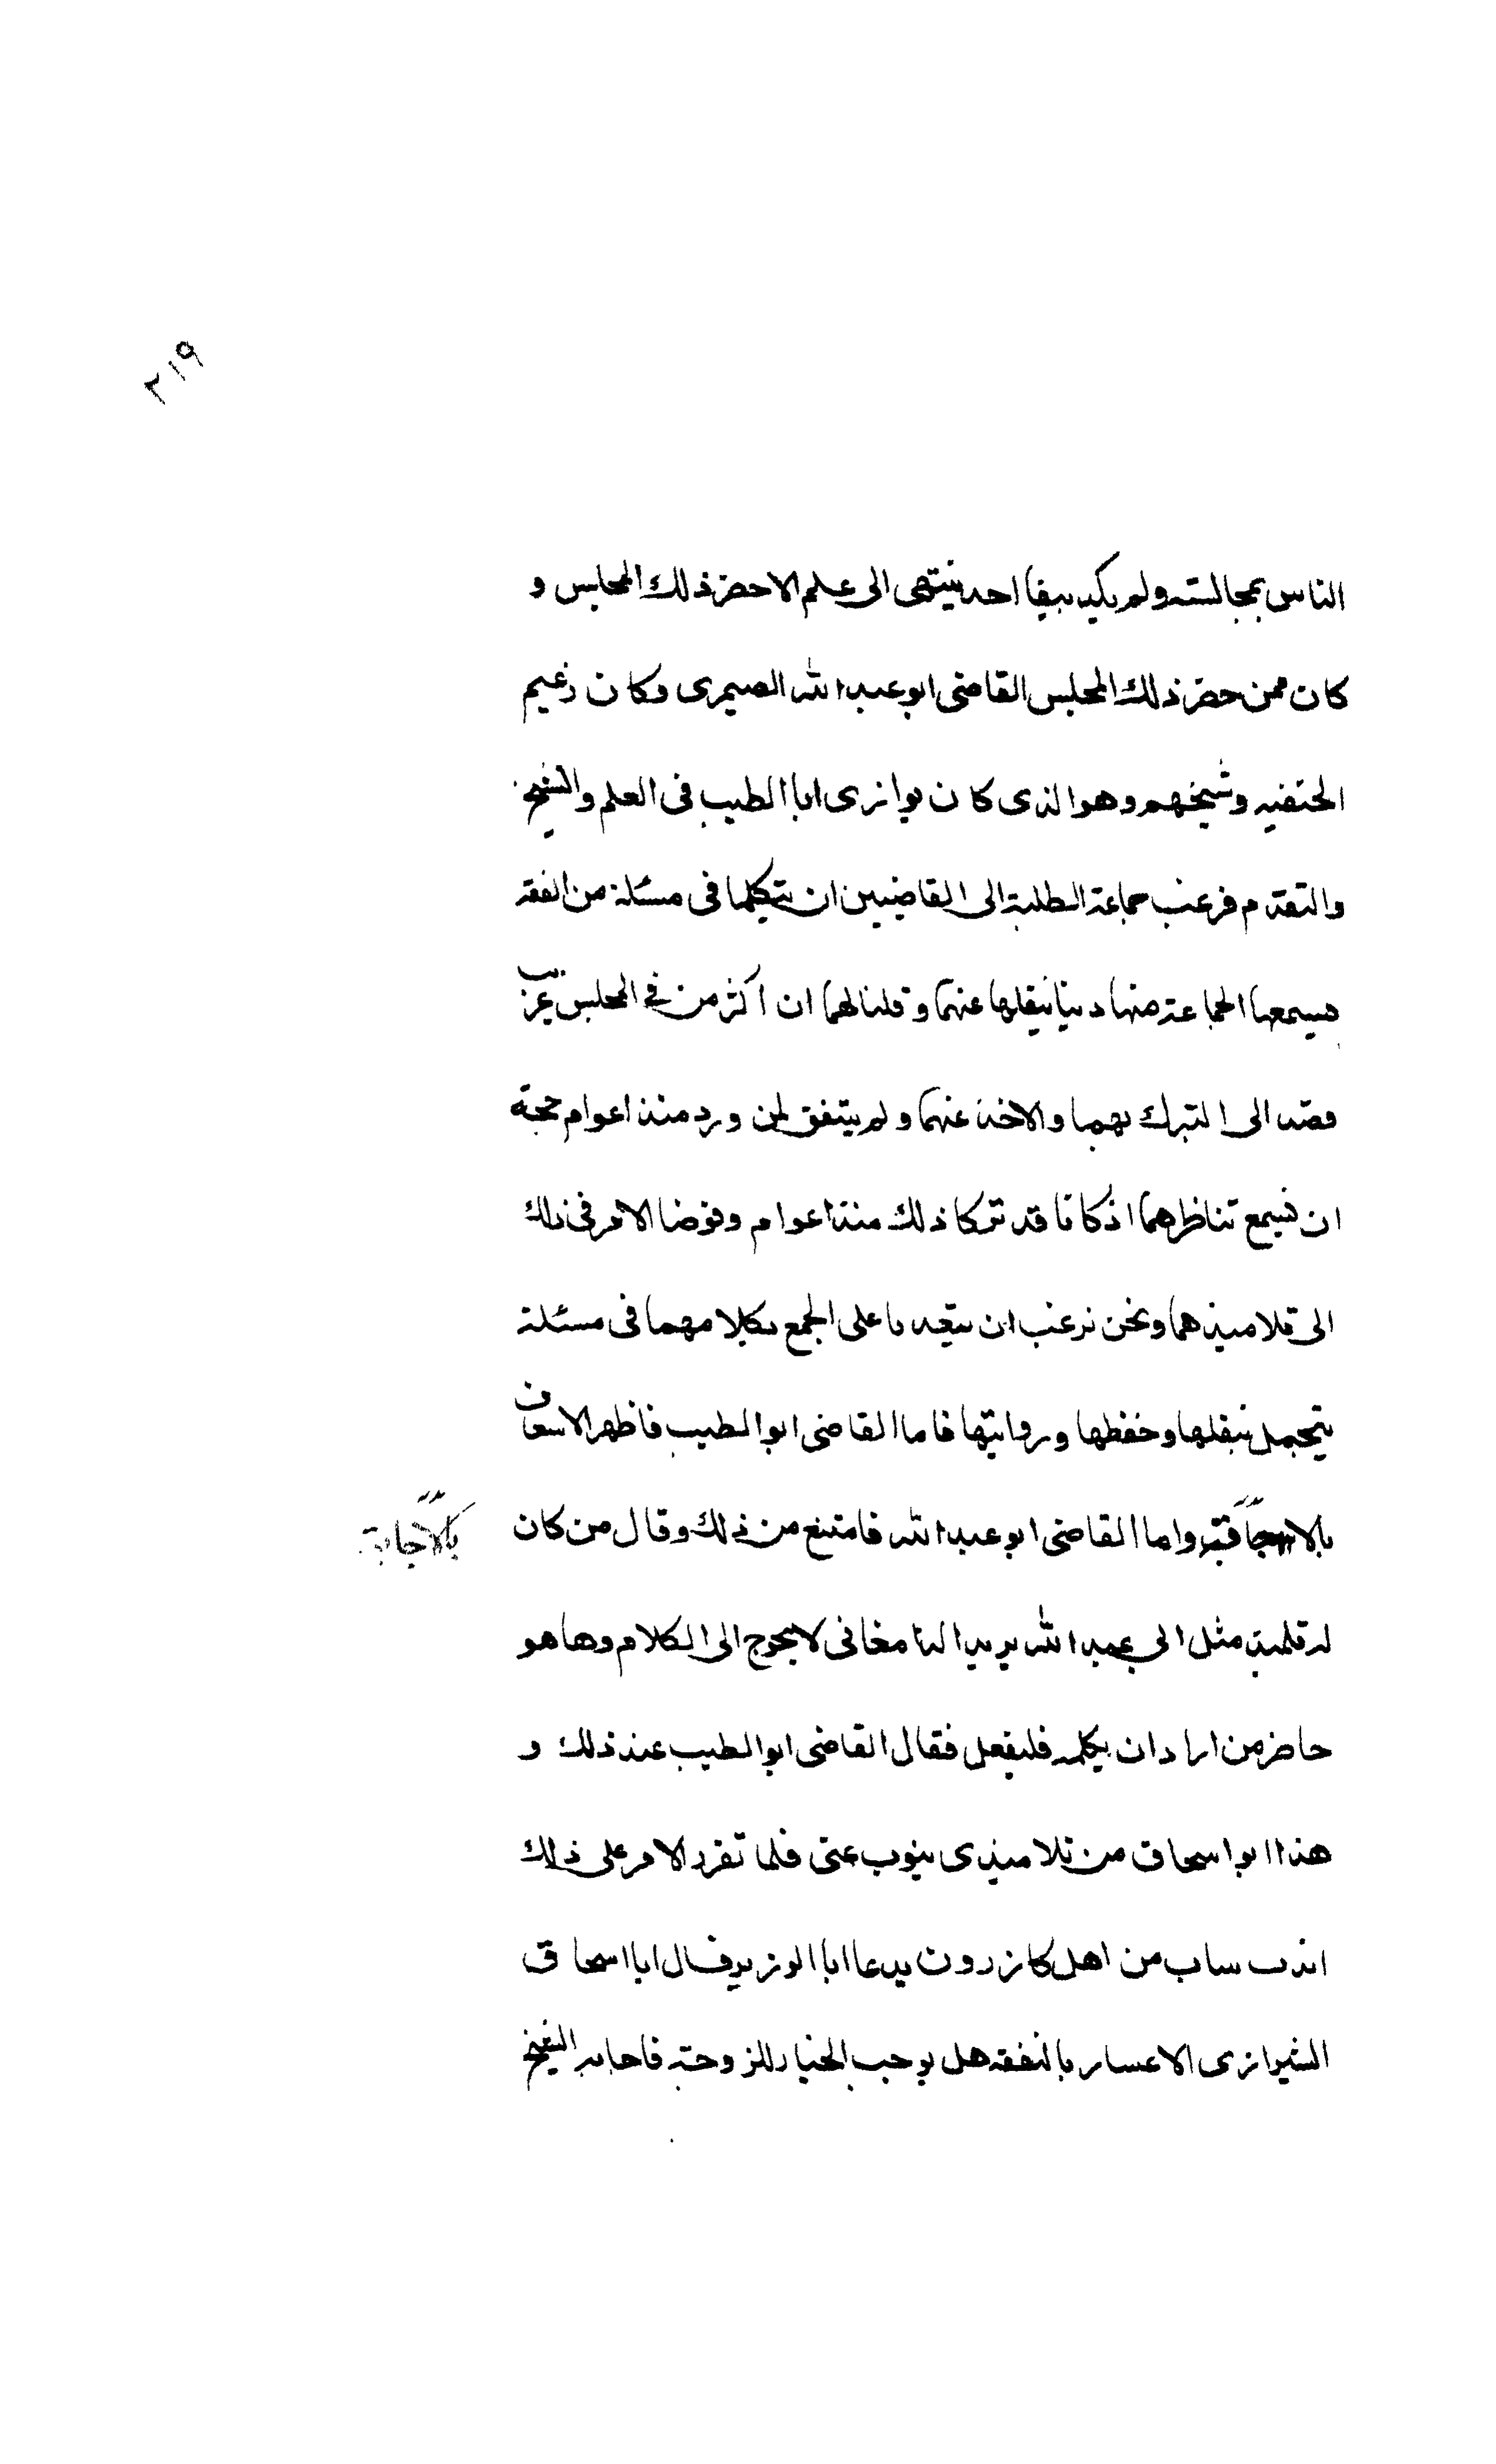 ٢١٩
الناس بمجالسته ولم يكد يبقا احد ينتهى الى علم الا حضر ذلك المجلس و
كان ممن حضر ذلك المجلس القاضى ابو عبد الله الصيمرى وكان زعيم
الحنفيه وشيخهم وهو الذى كان يوازى ابا الطيب فى العلم والشيخ
والتقدم فرغب جماعة الطلبة الى القاضيين ان يتكلما فى مسئلة من الفقه
يسمعها الجماعة منهما وينقلها عنهما وقلنا لهما ان اكثر من فى المجلس غريب
قصد الى التبرك بهما والاخذ عنهما ولم يتفق لمن ورد منذ اعوام جمة
ان يسمع تناظرهما اذ كانا قد تركا ذلك منذ اعوام وفوضا الامر فى ذلك
الى تلاميذهما ونحن نرغب ان يتصدقا على الجمع بكلامهما فى مسئلة
يتجمل بنقلها وحفظها وروايتها فاما القاضى ابو الطيب فاظهر الاسعاف
بالاجابة واما القاضى ابو عبد الله فامتنع من ذلك وقال من كان
بالاجابة
له تلميذ مثل ابى عبد الله يريد الدامغانى لا يحوج الى الكلام وها هو
حاضر من اراد ان يكلمه فليفعل فقال القاضى ابو الطيب عند ذلك و
هذا ابو اسحاق من تلاميذى ينوب عنى فلما تقرر الامر على ذلك
انتدب ساب من اهل كازرون يدعا ابا الوزير فسال ابا اسحاق
الشيرازى الاعسار بالنفقه هل يوجب الخيار للزوجة فاجابه الشيخ